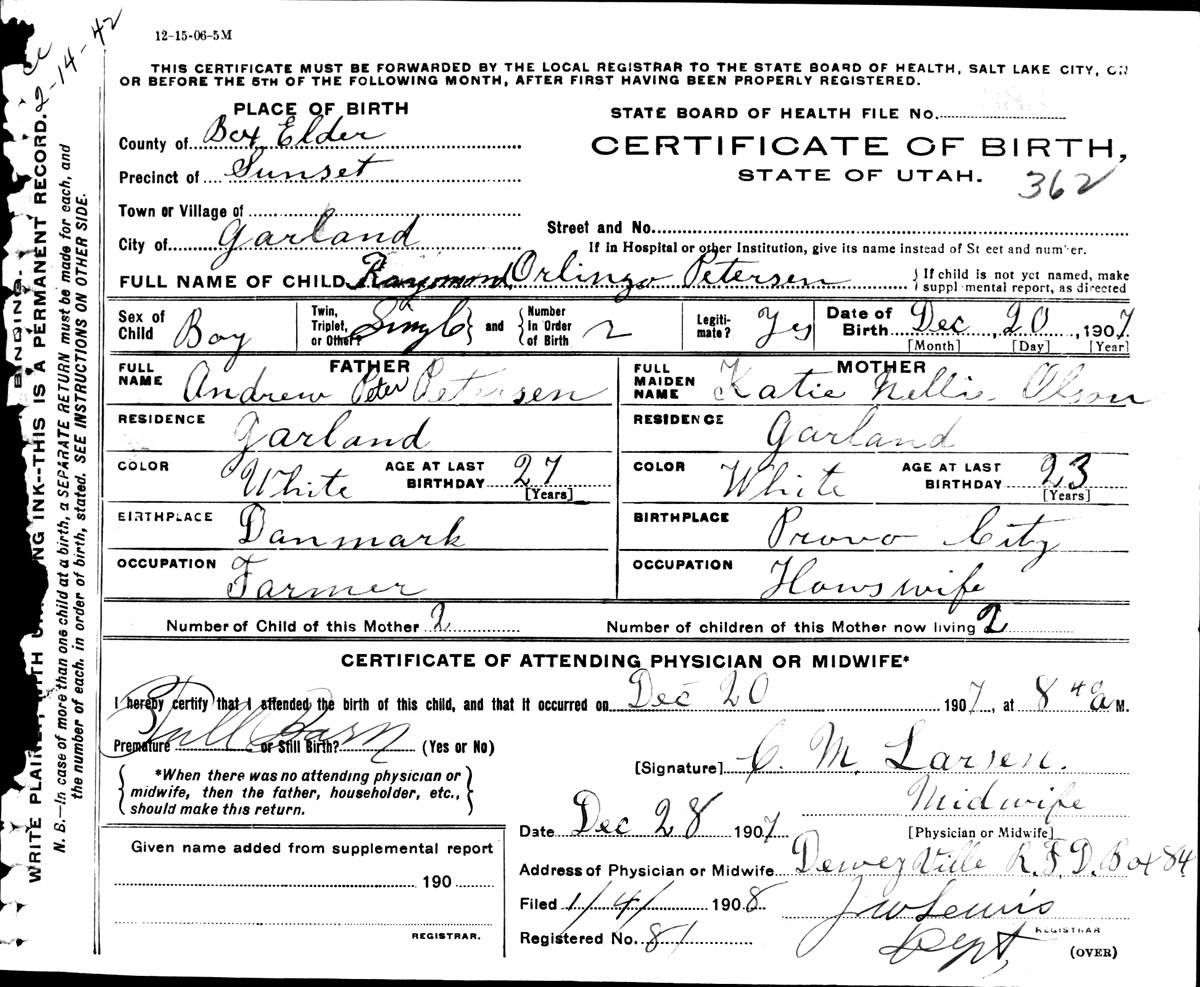 12-15-06-5M
2-14-42
THIS CERTIFICATE MUST BE FORWARDED BY THE LOCAL REGISTRAR TO THE STATE BOARD OF HEALTH, SALT LAKE CITY, ON
OR BEFORE THE 5TH OF THE FOLLOWING MONTH, AFTER FIRST HAVING BEEN PROPERLY REGISTERED.
PLACE OF BIRTH
County of Box Elder
Precinct of Sunset
Town or Village of
City of Garland
STATE BOARD OF HEALTH FILE No.
CERTIFICATE OF BIRTH,
STATE OF UTAH. 362
Street and No.
If in Hospital or other Institution, give its name instead of St eet and number.
FULL NAME OF CHILD Raymond Orlingo Petersen
If child is not yet named, make
suppl mental report, as directed
Sex of Child Boy
Twin, Triplet, or Other? Singl and Number In Order of Birth 2
Legiti-mate? Yes
Date of Birth Dec 20, 1907
[Month] [Day] [Year]
FATHER
FULL NAME Andrew Peter Petersen
RESIDENCE Garland
COLOR White AGE AT LAST BIRTHDAY 27
[Years]
BIRTHPLACE Danmark
OCCUPATION Farmer
MOTHER
FULL MAIDEN NAME Katie Nellie Olson
RESIDENCE Garland
COLOR White AGE AT LAST BIRTHDAY 23
[Years]
BIRTHPLACE Provo City
OCCUPATION Hows wife
Number of Child of this Mother 2 Number of children of this Mother now living 2
CERTIFICATE OF ATTENDING PHYSICIAN OR MIDWIFE*
I hereby certify that I attended the birth of this child, and that it occurred on Dec 20 1907, at 8 40 a M.
Full Born
Premature or Still Birth? (Yes or No)
*When there was no attending physician or
midwife, then the father, householder, etc.,
should make this return.
[Signature] C. M. Larsen.
Midwife
[Physician or Midwife]
Date Dec 28 1907
Address of Physician or Midwife Dewey Ville R.F.D. Box 84
Filed 1/4/ 1908 J W Lewis
REGISTRAR
Registered No. 81 Dept,
(OVER)
Given name added from supplemental report
190
REGISTRAR.
BINDING.
WRITE PLAINLY, WITH ING INK--THIS IS A PERMANENT RECORD.
N. B.—In case of more than one child at a birth, a SEPARATE RETURN must be made for each, and
the number of each, in order of birth, stated. SEE INSTRUCTIONS ON OTHER SIDE.